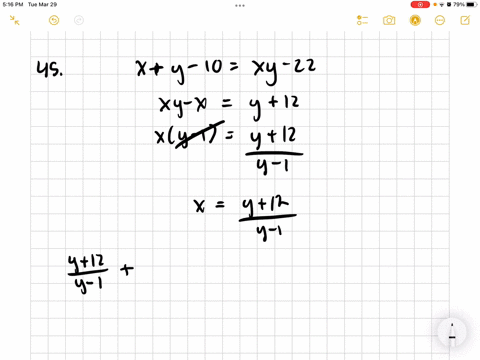 5:16 PM Tue Mar 29
79%
45. x + y - 10 = xy - 22
xy - x = y + 12
x(y-1) = y + 12
y - 1
x = y + 12
y - 1
y + 12 +
y - 1